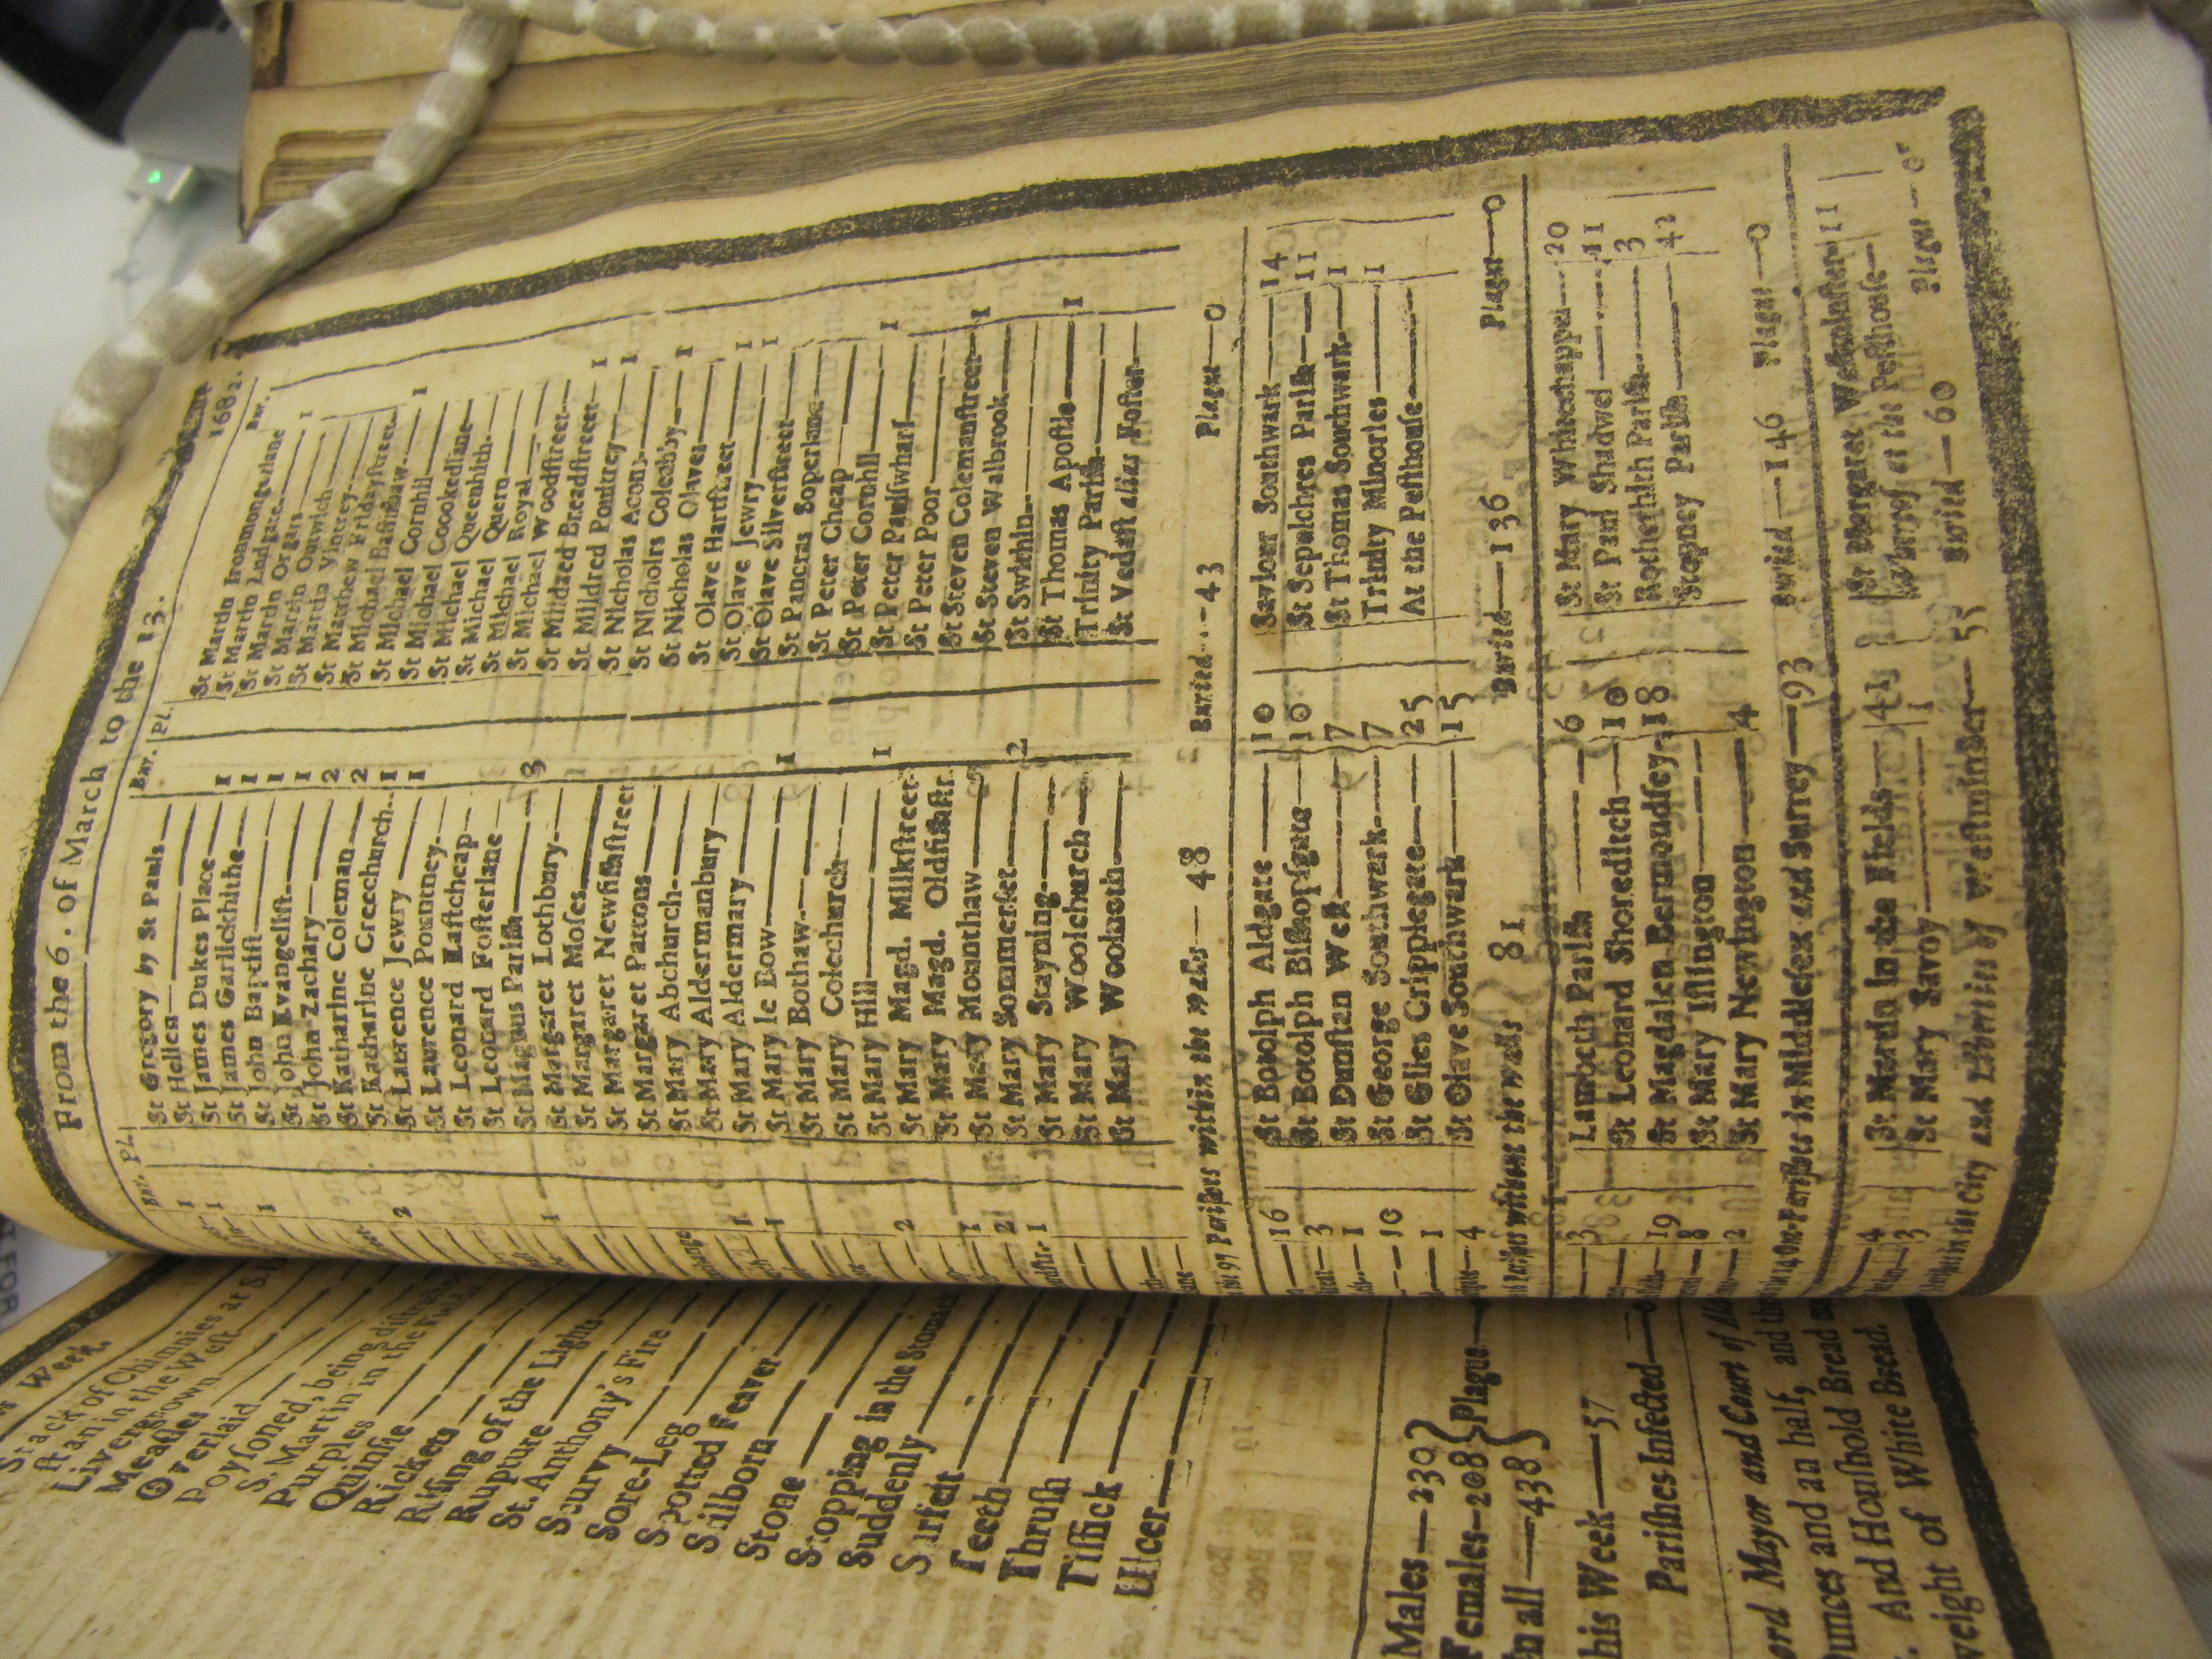 From the 6. of March to the 13. 1682.
Bur. Pl.
Bur. Pl.
Bur.
1
1
1
2
1
1
1
2
1
2
1
St Gregory by St Pauls
St Hellen
St James Dukes Place 1
St James Garlickhithe 1
St John Baptist 1
St John Evangelist 1
St John Zachary 2
St Katharine Coleman 2
St Katharine Creechurch 1
St Laurence Jewry 1
St Laurence Pountney
St Leonard Eastcheap
St Leonard Fosterlane
St Magnus Parish 3
St Margaret Lothbury
St Margaret Moses
St Margaret Newfishstreet
St Margaret Pattons
St Mary Abchurch
St Mary Aldermanbury
St Mary Aldermary
St Mary le Bow 1
St Mary Bothaw
St Mary Colechurch
St Mary Hill 1
St Mary Magd. Milkstreet
St Mary Magd. Oldfishstr.
St Mary Mounthaw
St Mary Sommerset 2
St Mary Stayning
St Mary Woolchurch
St Mary Woolnoth
St Martin Ironmongerlane
St Martin Ludgate 1
St Martin Orgars
St Martin Outwich
St Martin Vintrey
St Matthew Fridaystreet
St Michael Bassishaw 1
St Michael Cornhil
St Michael Coookedlane
St Michael Queenhith
St Michael Quern
St Michael Royal
St Michael Woodstreet
St Mildred Breadstreet 1
St Mildred Poultrey 1
St Nicholas Acons
St Nicholrs Coleabby 1
St Nicholas Olaves
St Olave Hartstreet 1
St Olave Jewry 1
St Olave Silverstreet
St Pancras Soperlane
St Peter Cheap
St Peter Cornhill 1
St Peter Paulswharf
St Peter Poor
St Steven Colemanstreet 1
St Steven Walbrook
St Swithin
St Thomas Apostle 1
Trinity Parish
St Vedast alias Foster
the 97 Parishes within the walls 48 Buried 43 Plague 0
16
3
1
10
1
4
St Botolph Aldgate 10
St Botolph Bishopsgate 10
St Dunstan West 7
St George Southwark 7
St Giles Cripplegate 25
St Olave Southwark 15
Saviour Southwark 14
St Sepulchres Parish 11
St Thomas Southwark 1
Trinity Minories 1
At the Pesthouse
Parishes without the walls 81 Buried 136 Plague 0
3
19
8
2
Lambeth Parish 6
St Leonard Shoreditch 10
St Magdalen Bermondsey 18
St Mary Islington
St Mary Newington 4
St Mary Whitechappel 20
St Paul Shadwel 11
Rotherhith Parish 3
Stepney Parish 42
Out-Parishes in Middlesex and Surrey 93 Buried 146 Plague 0
4
3
St Martin in the Fields 41
St Mary Savoy 1
St Margaret Westminster 11
at the Pesthouse
in the City and Liberties of Westminster 55 Buried 60 Plague 0
Week.
Stack of Chimnies at S.
stan in the West
Livergrown
Measles
Overlaid
Poysoned,
S. Martin in the Fields
Purples
Quinsie
Rickets
Rising of the Lights
Rupture
St. Anthony's Fire
Scurvy
Sore-Leg
Spotted Feaver
Stilborn
Stone
Stopping in the Stomach
Suddenly
Surfeit
Teeth
Thrush
Tissick
Ulcer
Males 230
Females 208 Plague
In all 438
his Week 57
Parishes Infected
ord Mayor and Court of
Ounces and an half, and
And Houshold Bread
weight of White Bread.